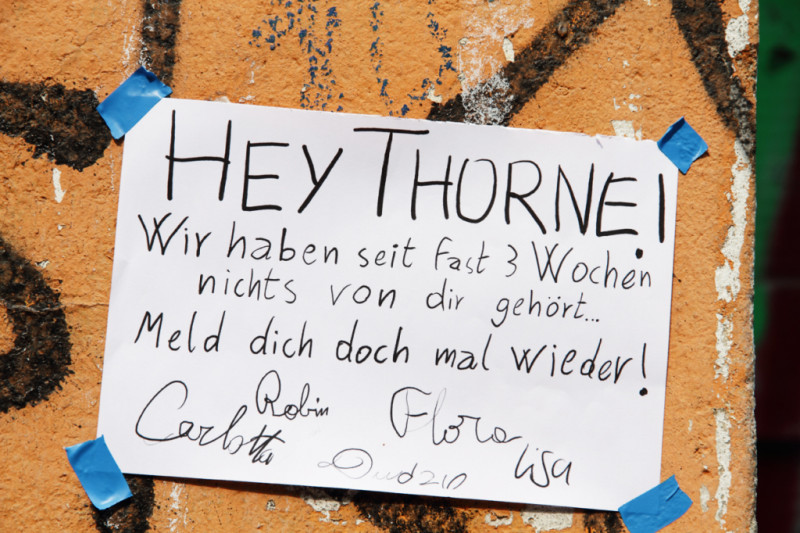 HEY THORNE!
Wir haben seit fast 3 Wochen
nichts von dir gehört...
Meld dich doch mal wieder!
Robin Flora
Carlotta Lisa